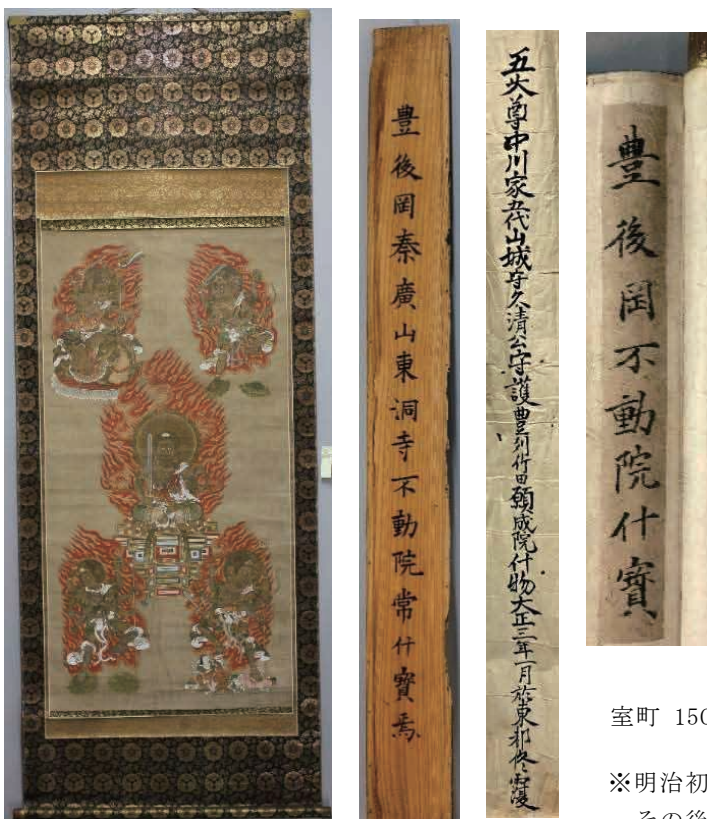 豊後岡泰廣山東洞寺不動院常什寳焉
五大尊中川家五代山城守久清公守護豊刕竹田願成院什物大正三年一月於東都修覆
豊後岡不動院什寳
室町 150
※明治初
その後